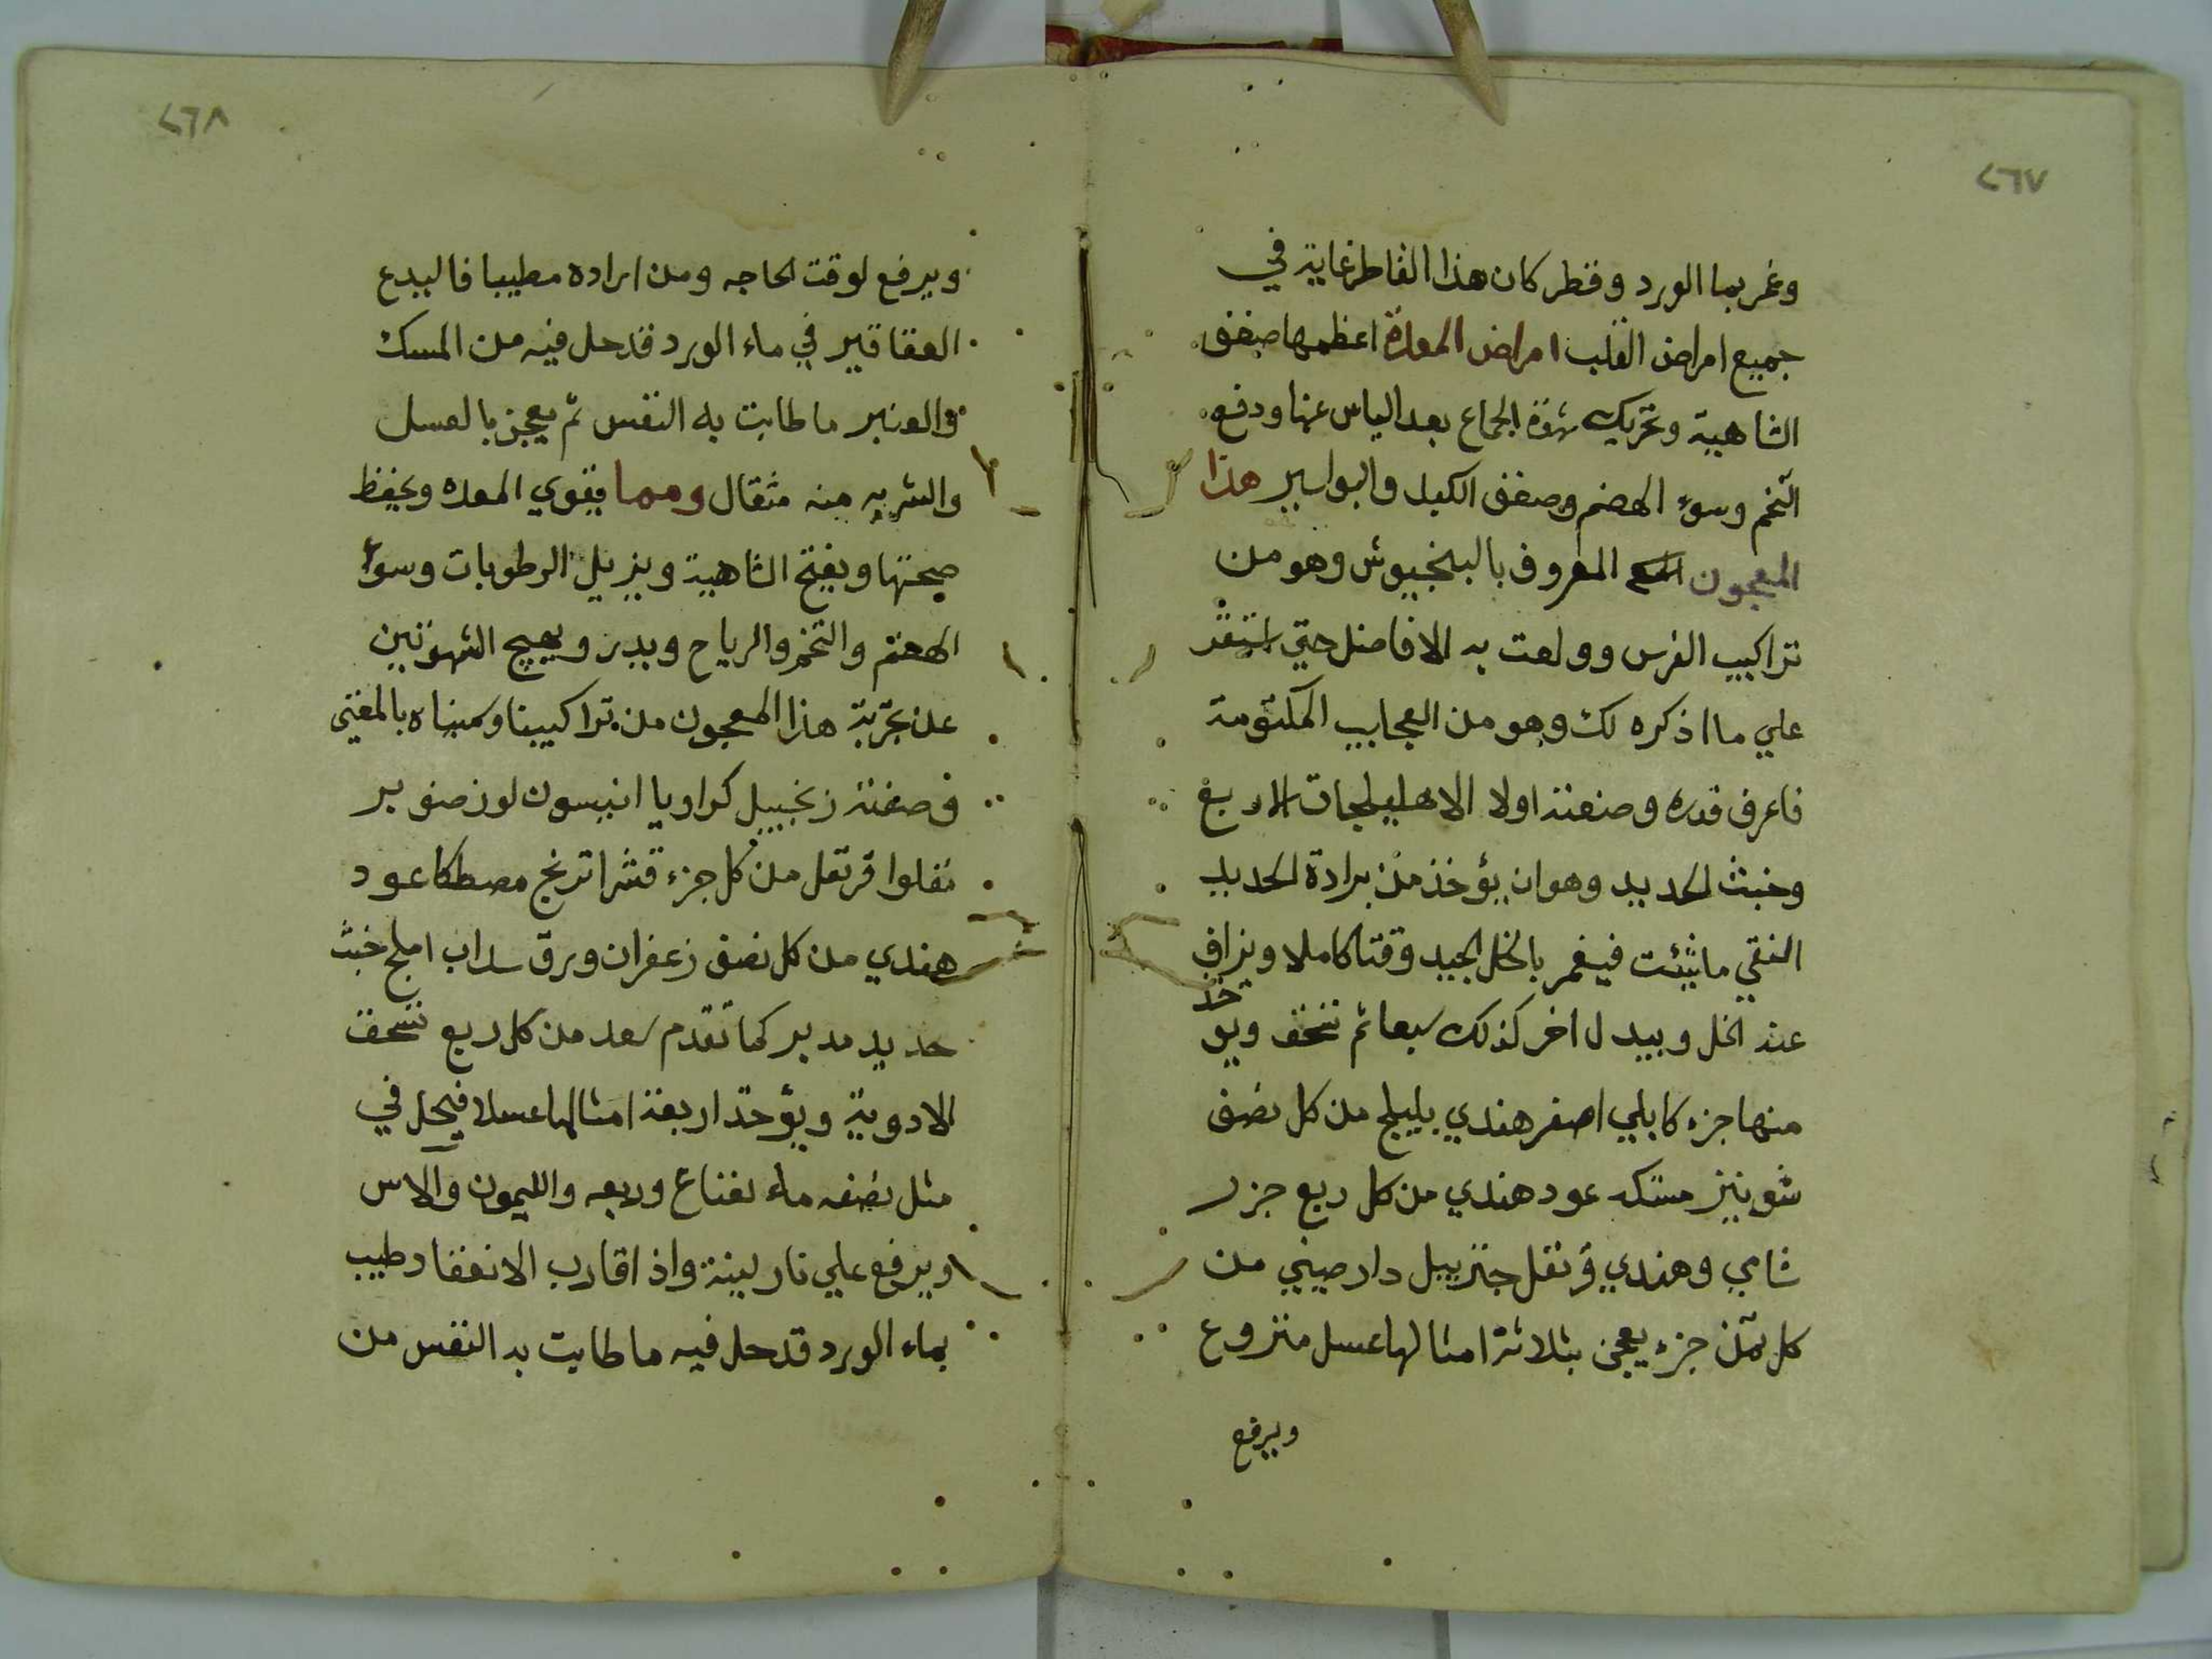 ٤٦٧
وغمر بما الورد وقطر كان هذا القاطر غاية في
جميع امراض القلب امراض المعدة اعظمها ضعف
الشاهية وتحريك شهوة الجماع بعد الياس عنها ودفع
التخم وسوء الهضم وضعف الكبد والبواسير هذا
المعجون المعروف بالبنجيوش وهو من
تراكيب الفرس وولعت به الافاضل حتي استقر
علي ما اذكره لك وهو من العجايب المكتومة
فاعرف قدره وصنعته اولا الاهليلجات الاربع
وخبث الحديد وهو ان يؤخذ من برادة الحديد
النقي ما شئت فيغمر بالخل الجيد وقتا كاملا ويراق
عنه الخل ويبدل اخر كذلك سبعا ثم تنخف ويوخذ
منها جزء كابلي اصفر هندي بليلج من كل نصف
شونيز مستكه عود هندي من كل ربع جزر
شامي وهندي قرنفل جنزبيل دارصيني من
كل ثمن جزء يعجن بثلاثة امثالها عسل منزوع
ويرفع
٤٦٨
ويرفع لوقت الحاجه ومن اراده مطيبا فاليدع
العقاقير في ماء الورد قد حل فيه من المسك
والعنبر ما طابت به النفس ثم يعجن بالعسل
والشربه منه مثقال ومما يقوي المعده ويحفظ
صحتها ويفتح الشاهية ويزيل الرطوبات وسوء
الهضم والتخم والرياح ويدر ويهيج الشهوتين
عن تجربة هذا المعجون من تراكيبنا وسميناه بالمغني
وصفته زنجبيل كراويا انيسون لوز صنوبر
نقلوا قرنفل من كل جزء قشر اترنج مصطكا عود
هندي من كل نصف زعفران ورق سداب املج خبث
حديد مدبر كما تقدم سعد من كل ربع تسحق
الادوية ويؤخذ اربعة امثالها عسلا فيحل في
مثل نصفه ماء نعناع وربعه والليمون والاس
ويرفع علي نار لينة واذا قارب الانعقاد طيب
بماء الورد قد حل فيه ما طابت به النفس من